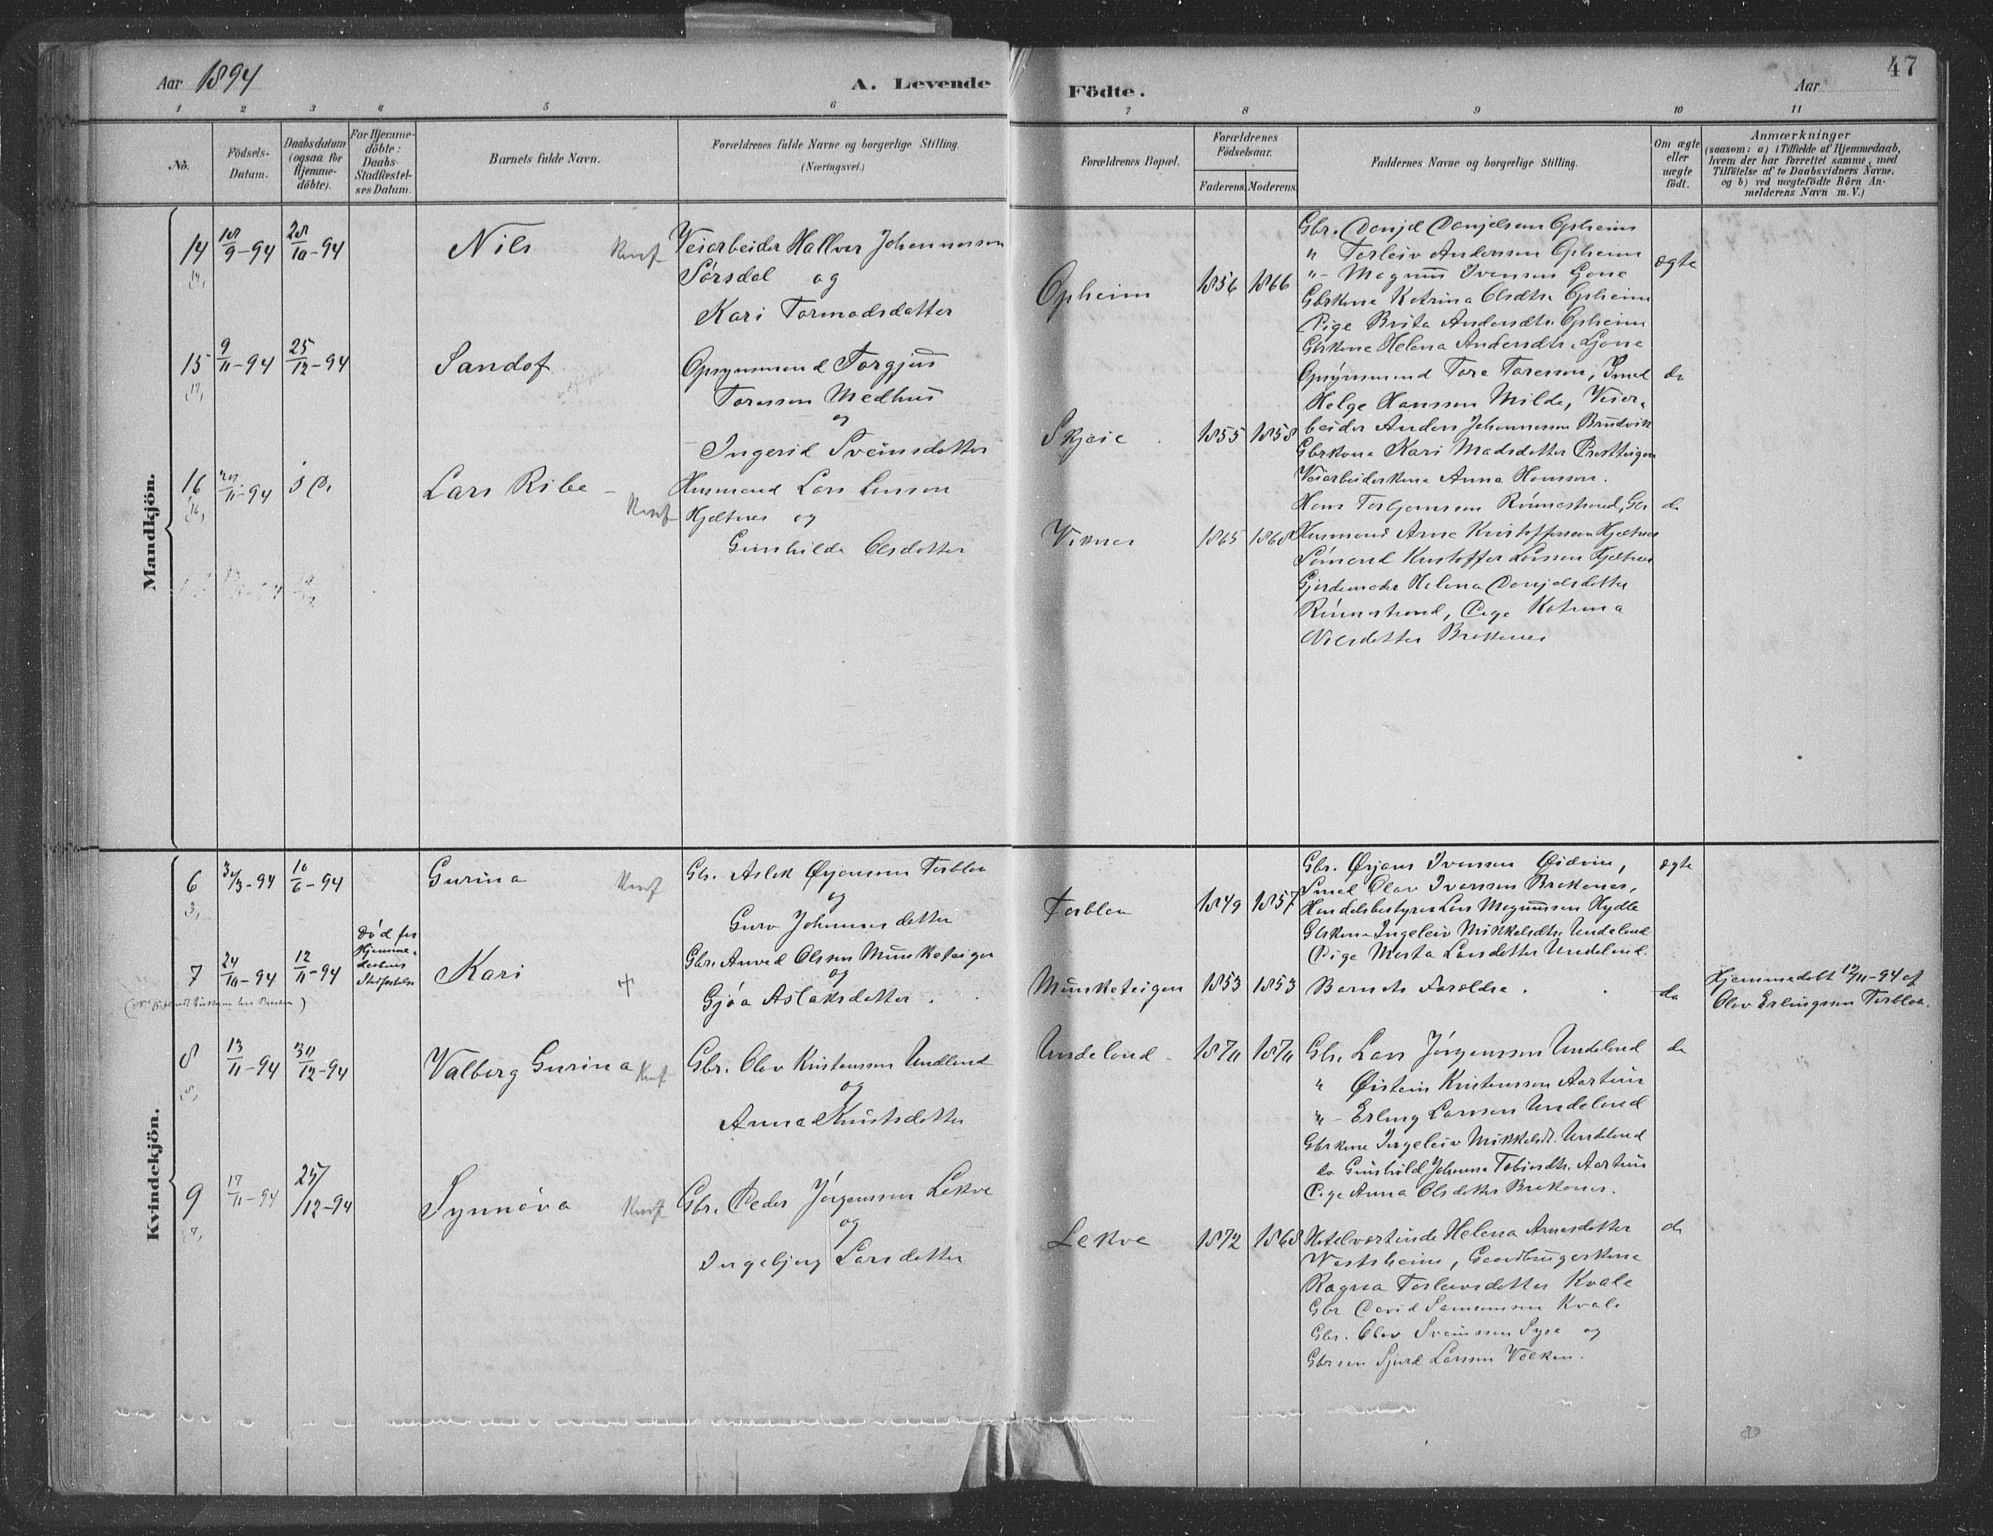 Aar 1894
A. Levende
Födte.
Aar
47
1 2 3 4 5 6 7 8 9 10 11
No.
Födsels-
Datum.
Daabsdatum
(ogsaa for
Hjemme-
döbte).
For Hjemme-
döbte:
Daabs-
Stadfæstel-
ses Datum.
Barnets fulde Navn.
Forældrenes fulde Navne og borgerlige Stilling.
(Næringsvei.)
Forældrenes Bopæl.
Forældrenes
Födselsaar.
Faderens. Moderens.
Faddernes Navne og borgerlige Stilling.
Om ægte
eller
uægte
födt.
Anmærkninger
(saasom: a) i Tilfælde af Hjemmedaab,
hvem der har forrettet samme, med
Tilföielse af to Daabsvidners Navne.
og b) ved uægtefödte Börn An-
melderens Navn m. V.)
Mandkjön.
14
18/9-94
28/10-94
Nils
Konf
Veiarbeider Hallver Johannessen
Sørsdal og
Kari Tormodsdatter
Opheim
1856 1866
Gbr. Danjel Danjelsen Opheim
" Torleiv Anderssen Opheim
"- Magnus Ivensen Gone
Gbrkone Katrina Olsdtr. Opheim
Pige Brita Andersdtr. Opheim
Gbrkone Helena Andersdtr.
ægte
15
9/11-94
25/12-94
Sandof
Opsynsmand Torgjus
Toressen Medhus
og
Ingerid Sveinsdatter
Skjeie
1855 1858
Opsynsmand Tore Toressen, Smed
Helge Hanssen Milde, Veiar-
beider Anders Johannessen Brudvik
Gbrkone Kari Madsdatter Prestteigen
Veiarbeiderkone Anna Hanssen.
do
16
/11-94
s. D.
Lars Ribe
Konf
Husmand Lars Larssen
Hjeltnes og
Gunhilda Olsdatter
Viknes
1865 1868
Hans Torbjørnssen Rónnestrand, Gbr
Husmand Arne Kristoffersen Hjeltnes
Sømand Kristoffer Larssen Hjeltnes
Gjordemoder Helena Danjelsdatter
Rónnestrand, Pige Katrina
Nilsdatter Brekenes
do
Kvindekjön.
6
3,
/3-94
10/6-94
Gurina
Konf
Gbr. Aslak Ørjanssen Torbloa
og
Guro Johannesdatter
Torbloa
1849 1857
Gbr. Ørjans Ivenssen Øidvin,
Smed Olav Ivarssen Brekenes,
Handelsbestyrer Lars Magnussen Hydle
Gbrkone Ingeleiv Mikkelsdtr. Undeland
Pige Marta Larsdatter Undeland.
ægte
7
24/10-94
12/11-94
Død før
Hjemme-
daabens
Stadfæstelse
Kari
Gbr. Amund Olsen Munketeigen
og
Gjøa Aslaksdatter.
Munketeigen
1853 1853
Barnets Foreldre.
do
Hjemmedøbt 12/11-94 af
Olav Erlingssen Torbloa.
8
8,
13/11-94
30/12-94
Valborg Gurina
Konf
Gbr. Olav Kristenssen Undeland
og
Anna Knutsdatter
Undeland
1870 1870
Gbr. Lars Jørgenssen Undeland
" Øistein Kristenssen Aartun
"- Erling Larssen Undeland
Gbrkone Ingeleiv Mikkelsdt. Undeland
do Gunhild Johanna Tobiasdtr. Aartun
Pige Anna Olsdatter Brekenes.
do
9
7,
17/11-94
25/12-94
Synnøva
Konf
Gbr. Peder Jørgenssen Lekve
og
Ingebjørg Larsdatter
Lekve
1872 1868
Hotelvertinde Helena Arnesdatter
Vestrheim, Gaardbrugerkone
Ragna Torleivsdatter Kvale
Gbr David Samsonsen Kvale
Gbr. Olav Sveinssen Syse og
Gbrsøn Sjurd Larssen Velken.
do